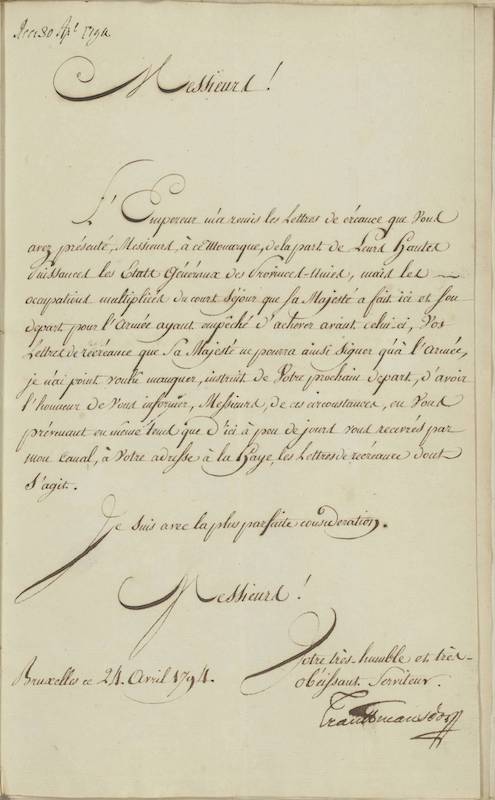 Rec. 30 Apl. 1794.
Messieurs!
L'Empereur m'a remis les Lettres de créance que Vous
avez présenté, Messieurs, à ce Monarque, de la part de Leurs Hautes
Puissances les Etats Généraux des Provinces-Unies, mais les
occupations multipliées du court séjour que Sa Majesté a fait ici et son
depart pour l'Armée ayant empêché d'achever avant celui-ci, Vos
Lettres de recréance que Sa Majesté ne pourra ainsi signer qu'à l'Armée,
je n'ai point voulu manquer, instruit de Votre prochain depart, d'avoir
l'honneur de Vous informer, Messieurs, de ces circonstances, en Vous
prévenant en même tems que d'ici à peu de jours vous recevrés par
mon canal, à Votre adresse à la Haye, les Lettres de recréance dont
s'agit.
Je suis avec la plus parfaite consideration.
Messieurs!
Votre très-humble et très-
obéissant Serviteur.
Bruxelles ce 24. Avril 1794.
Trauttmansdorff